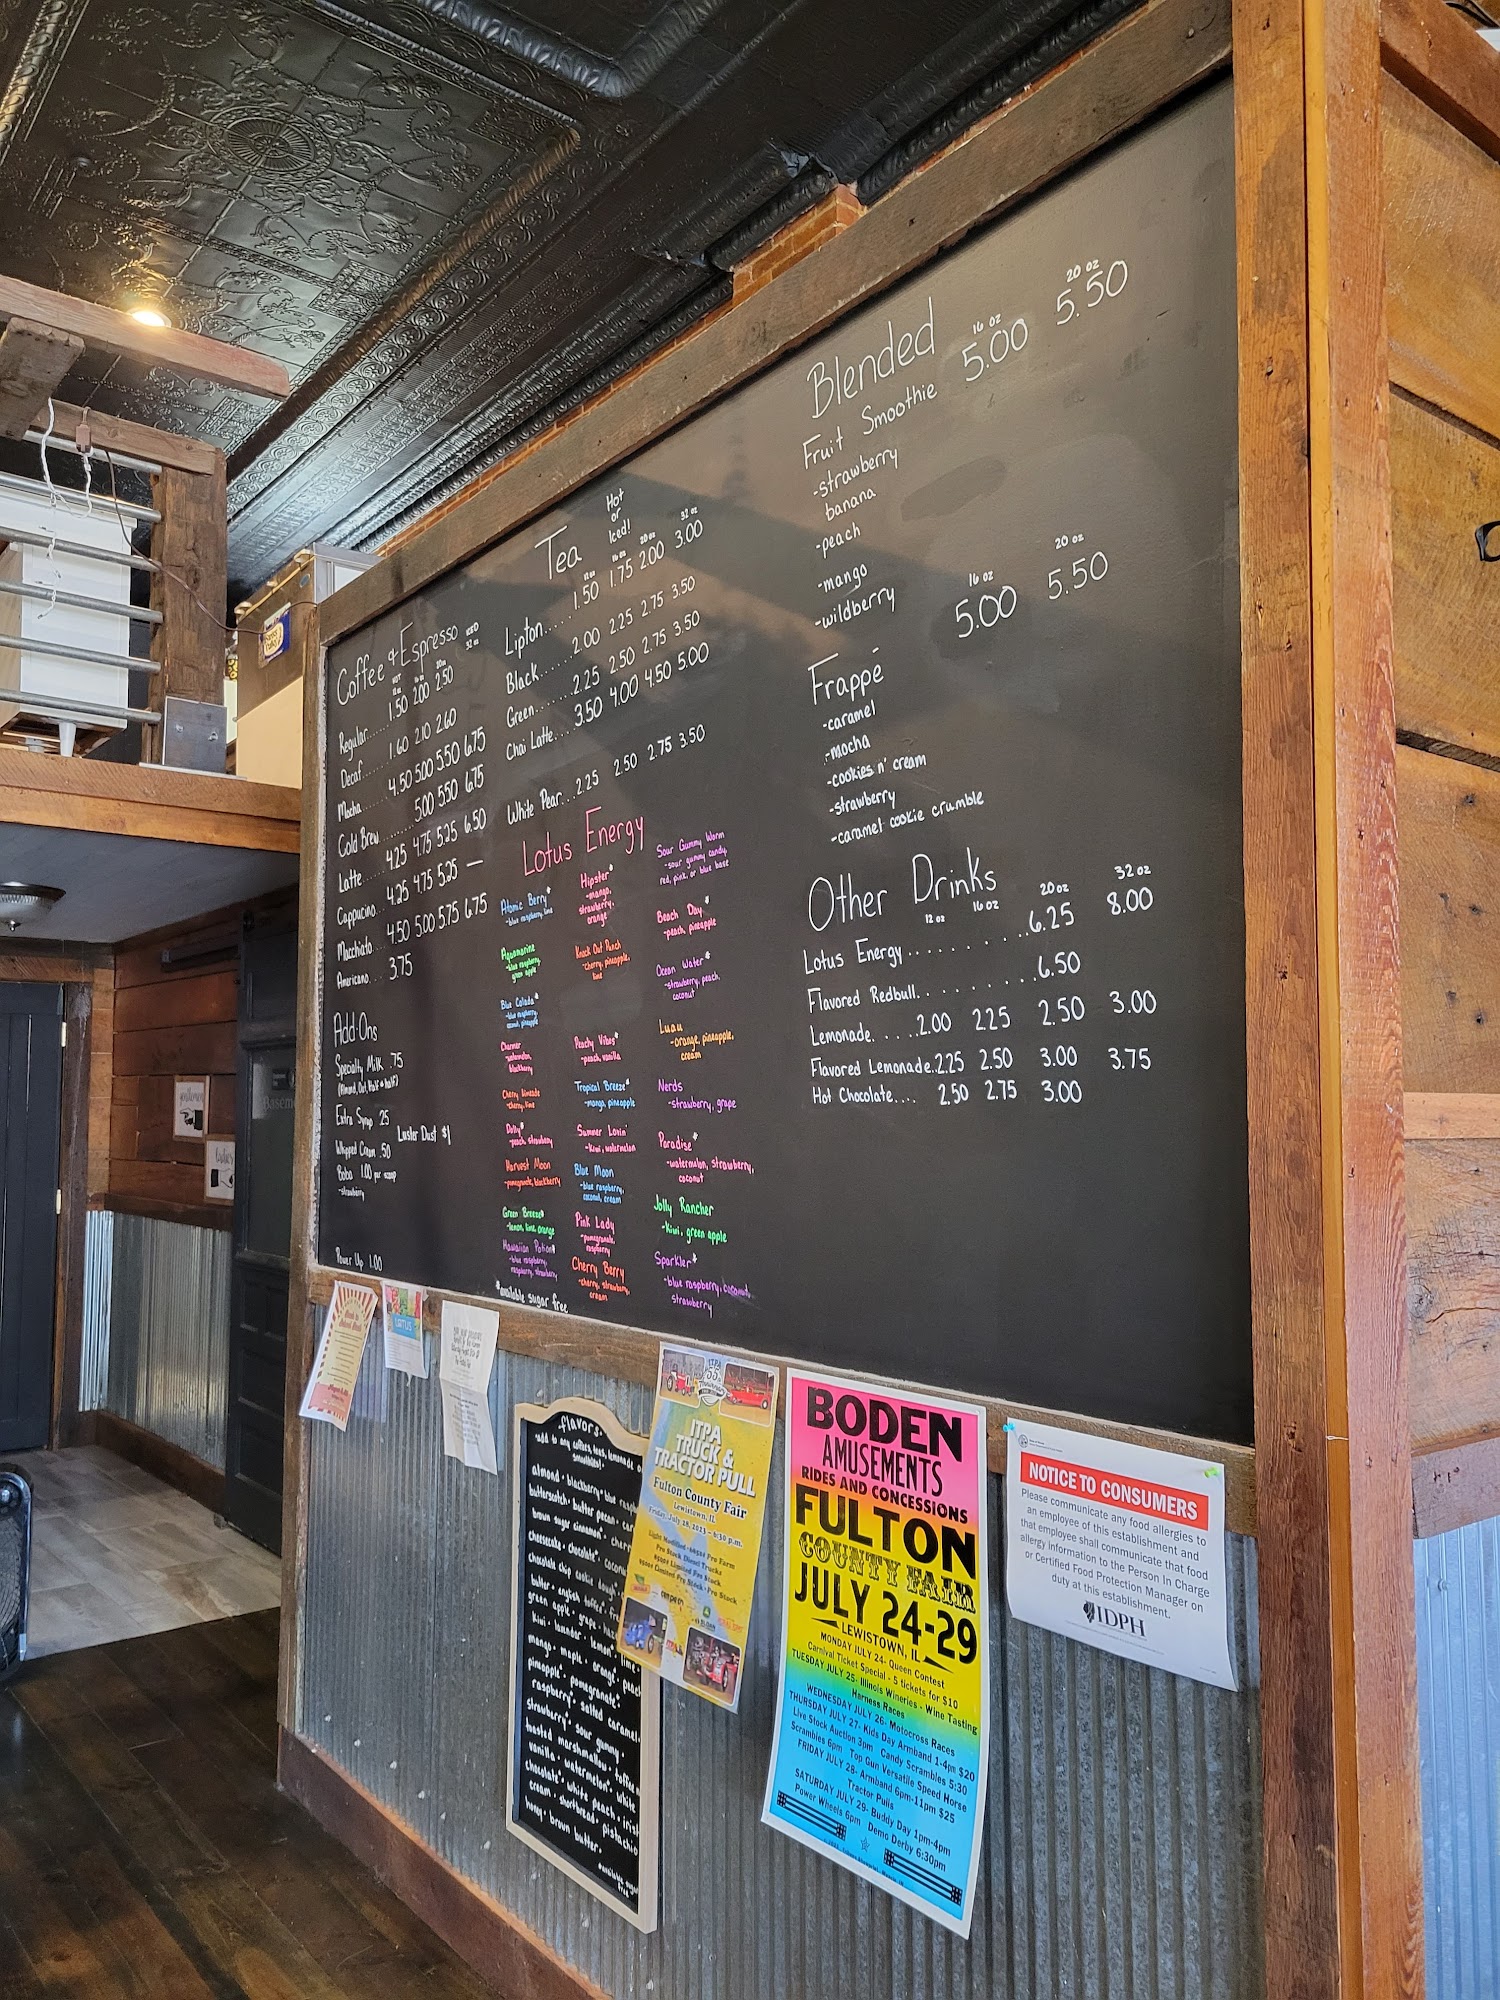 Coffee & Espresso
HOT
ICED
12 oz 16 oz 20 oz 32 oz
Regular..... 1.50 2.00 2.50
Decaf..... 1.60 2.10 2.60
Mocha..... 4.50 5.00 5.50 6.75
Cold Brew........ 5.00 5.50 6.75
Latte..... 4.25 4.75 5.25 6.50
Cappucino... 4.25 4.75 5.25 —
Macchiato... 4.50 5.00 5.75 6.75
Americano... 3.75
Add-Ons
Specialty Milk .75
(Almond, Oat, Half & half)
Extra Syrup .25
Luster Dust $1
Whipped Cream .50
Boba 1.00 per scoop
-strawberry
Power Up 1.00
Tea
Hot
or
Iced!
12 oz 16 oz 20 oz 32 oz
Lipton..... 1.50 1.75 2.00 3.00
Black..... 2.00 2.25 2.75 3.50
Green..... 2.25 2.50 2.75 3.50
Chai Latte.... 3.50 4.00 4.50 5.00
White Pear... 2.25 2.50 2.75 3.50
Lotus Energy
Atomic Berry*
-blue raspberry, lime
Aquamarine
-blue raspberry,
green apple
Blue Colada*
-blue raspberry,
coconut, pineapple
Charmer
-watermelon,
blackberry
Cherry Limeade
-cherry, lime
Dolly*
-peach, strawberry
Harvest Moon
-pomegranate, blackberry
Green Breeze*
-lemon, lime, orange
Hawaiian Potion*
-blue raspberry,
raspberry, strawberry
*available sugar free
Hipster*
-mango,
strawberry,
orange
Knock Out Punch
-cherry, pineapple,
lime
Peachy Vibes*
-peach, vanilla
Tropical Breeze*
-mango, pineapple
Summer Lovin'
-kiwi, watermelon
Blue Moon
-blue raspberry,
coconut, cream
Pink Lady
-pomegranate,
raspberry
Cherry Berry
-cherry, strawberry,
cream
Sour Gummy Worm
-sour gummy candy,
red, pink, or blue base
Beach Day*
-peach, pineapple
Ocean Water*
-strawberry, peach,
coconut
Luau
-orange, pineapple,
cream
Nerds
-strawberry, grape
Paradise*
-watermelon, strawberry,
coconut
Jolly Rancher
-kiwi, green apple
Sparkler*
-blue raspberry, coconut,
strawberry
Blended
16 oz 20 oz
Fruit Smoothie 5.00 5.50
-strawberry
banana
-peach
-mango
-wildberry
16 oz 20 oz
Frappé 5.00 5.50
-caramel
-mocha
-cookies n' cream
-strawberry
-caramel cookie crumble
Other Drinks
12 oz 16 oz 20 oz 32 oz
Lotus Energy.......... 6.25 8.00
Flavored Redbull......... 6.50
Lemonade..... 2.00 2.25 2.50 3.00
Flavored Lemonade.. 2.25 2.50 3.00 3.75
Hot Chocolate.... 2.50 2.75 3.00
LOTUS
·flavors·
add to any coffees, teas, lemonade or
smoothies!
almond · blackberry · blue raspb
butterscotch · butter pecan · car
brown sugar cinnamon · cherr
cheesecake · chocolate* · coconu
chocolate chip cookie dough
butter · english toffee
green apple · grape · haz
kiwi · lavender · lemon · lime ·
mango · maple · orange · peach
pineapple · pomegranate ·
raspberry · salted caramel ·
strawberry · sour gummy ·
toasted marshmallow · toffee
vanilla · watermelon · white
chocolate · white peach · irish
cream · shortbread · pistachio
honey · brown butter ·
*available sugar
free
55th
ITPA
TRUCK &
TRACTOR PULL
Fulton County Fair
Lewistown, IL
Friday, July 28, 2023 - 6:30 p.m.
Pro Stock Diesel Trucks
BODEN
AMUSEMENTS
RIDES AND CONCESSIONS
FULTON
COUNTY FAIR
JULY 24-29
LEWISTOWN, IL
MONDAY JULY 24- Queen Contest
Carnival Ticket Special - 5 tickets for $10
TUESDAY JULY 25- Illinois Wineries - Wine Tasting
Harness Races
WEDNESDAY JULY 26- Motocross Races
THURSDAY JULY 27- Kids Day Armband 1-4pm $20
Live Stock Auction 3pm Candy Scrambles 5:30
Scrambles 6pm Top Gun Versatile Speed Horse
FRIDAY JULY 28- Armband 6pm-11pm $25
Tractor Pulls
SATURDAY JULY 29- Buddy Day 1pm-4pm
Power Wheels 6pm Demo Derby 6:30pm
NOTICE TO CONSUMERS
Please communicate any food allergies to
an employee of this establishment and
that employee shall communicate that food
allergy information to the Person In Charge
or Certified Food Protection Manager on
duty at this establishment.
IDPH